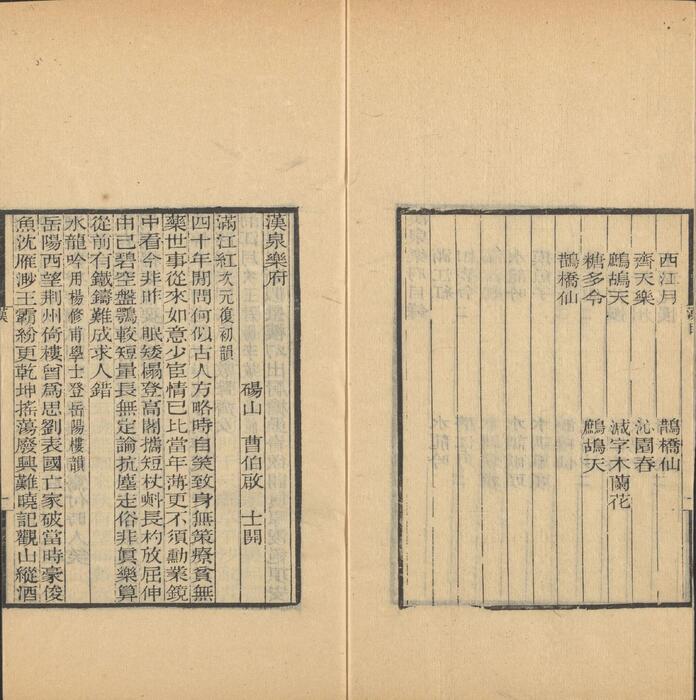 漢目
西江月 鵲橋仙
齊天樂 沁園春
鷓鴣天 減字木蘭花
糖多令 鷓鴣天
鵲橋仙
漢泉樂府
碭山 曹伯啟 士開
滿江紅次元復初韻
四十年閒問何似古人方略時自笑致身無策療貧無
藥世事從來如意少宦情已比當年薄更不須勳業鏡
中看今非昨 眠矮榻登高閣攜短杖㪺長杓放屈伸
由己碧空盤鶚較短量長無定論抗塵走俗非眞樂算
從前有鐵鑄難成求人錯
水龍吟用楊修甫學士登岳陽樓韻
岳陽西望荆州倚樓曾爲思劉表國亡家破當時豪俊
魚沈雁渺王霸紛更乾坤搖蕩廢興難曉記觀山縱酒
漢